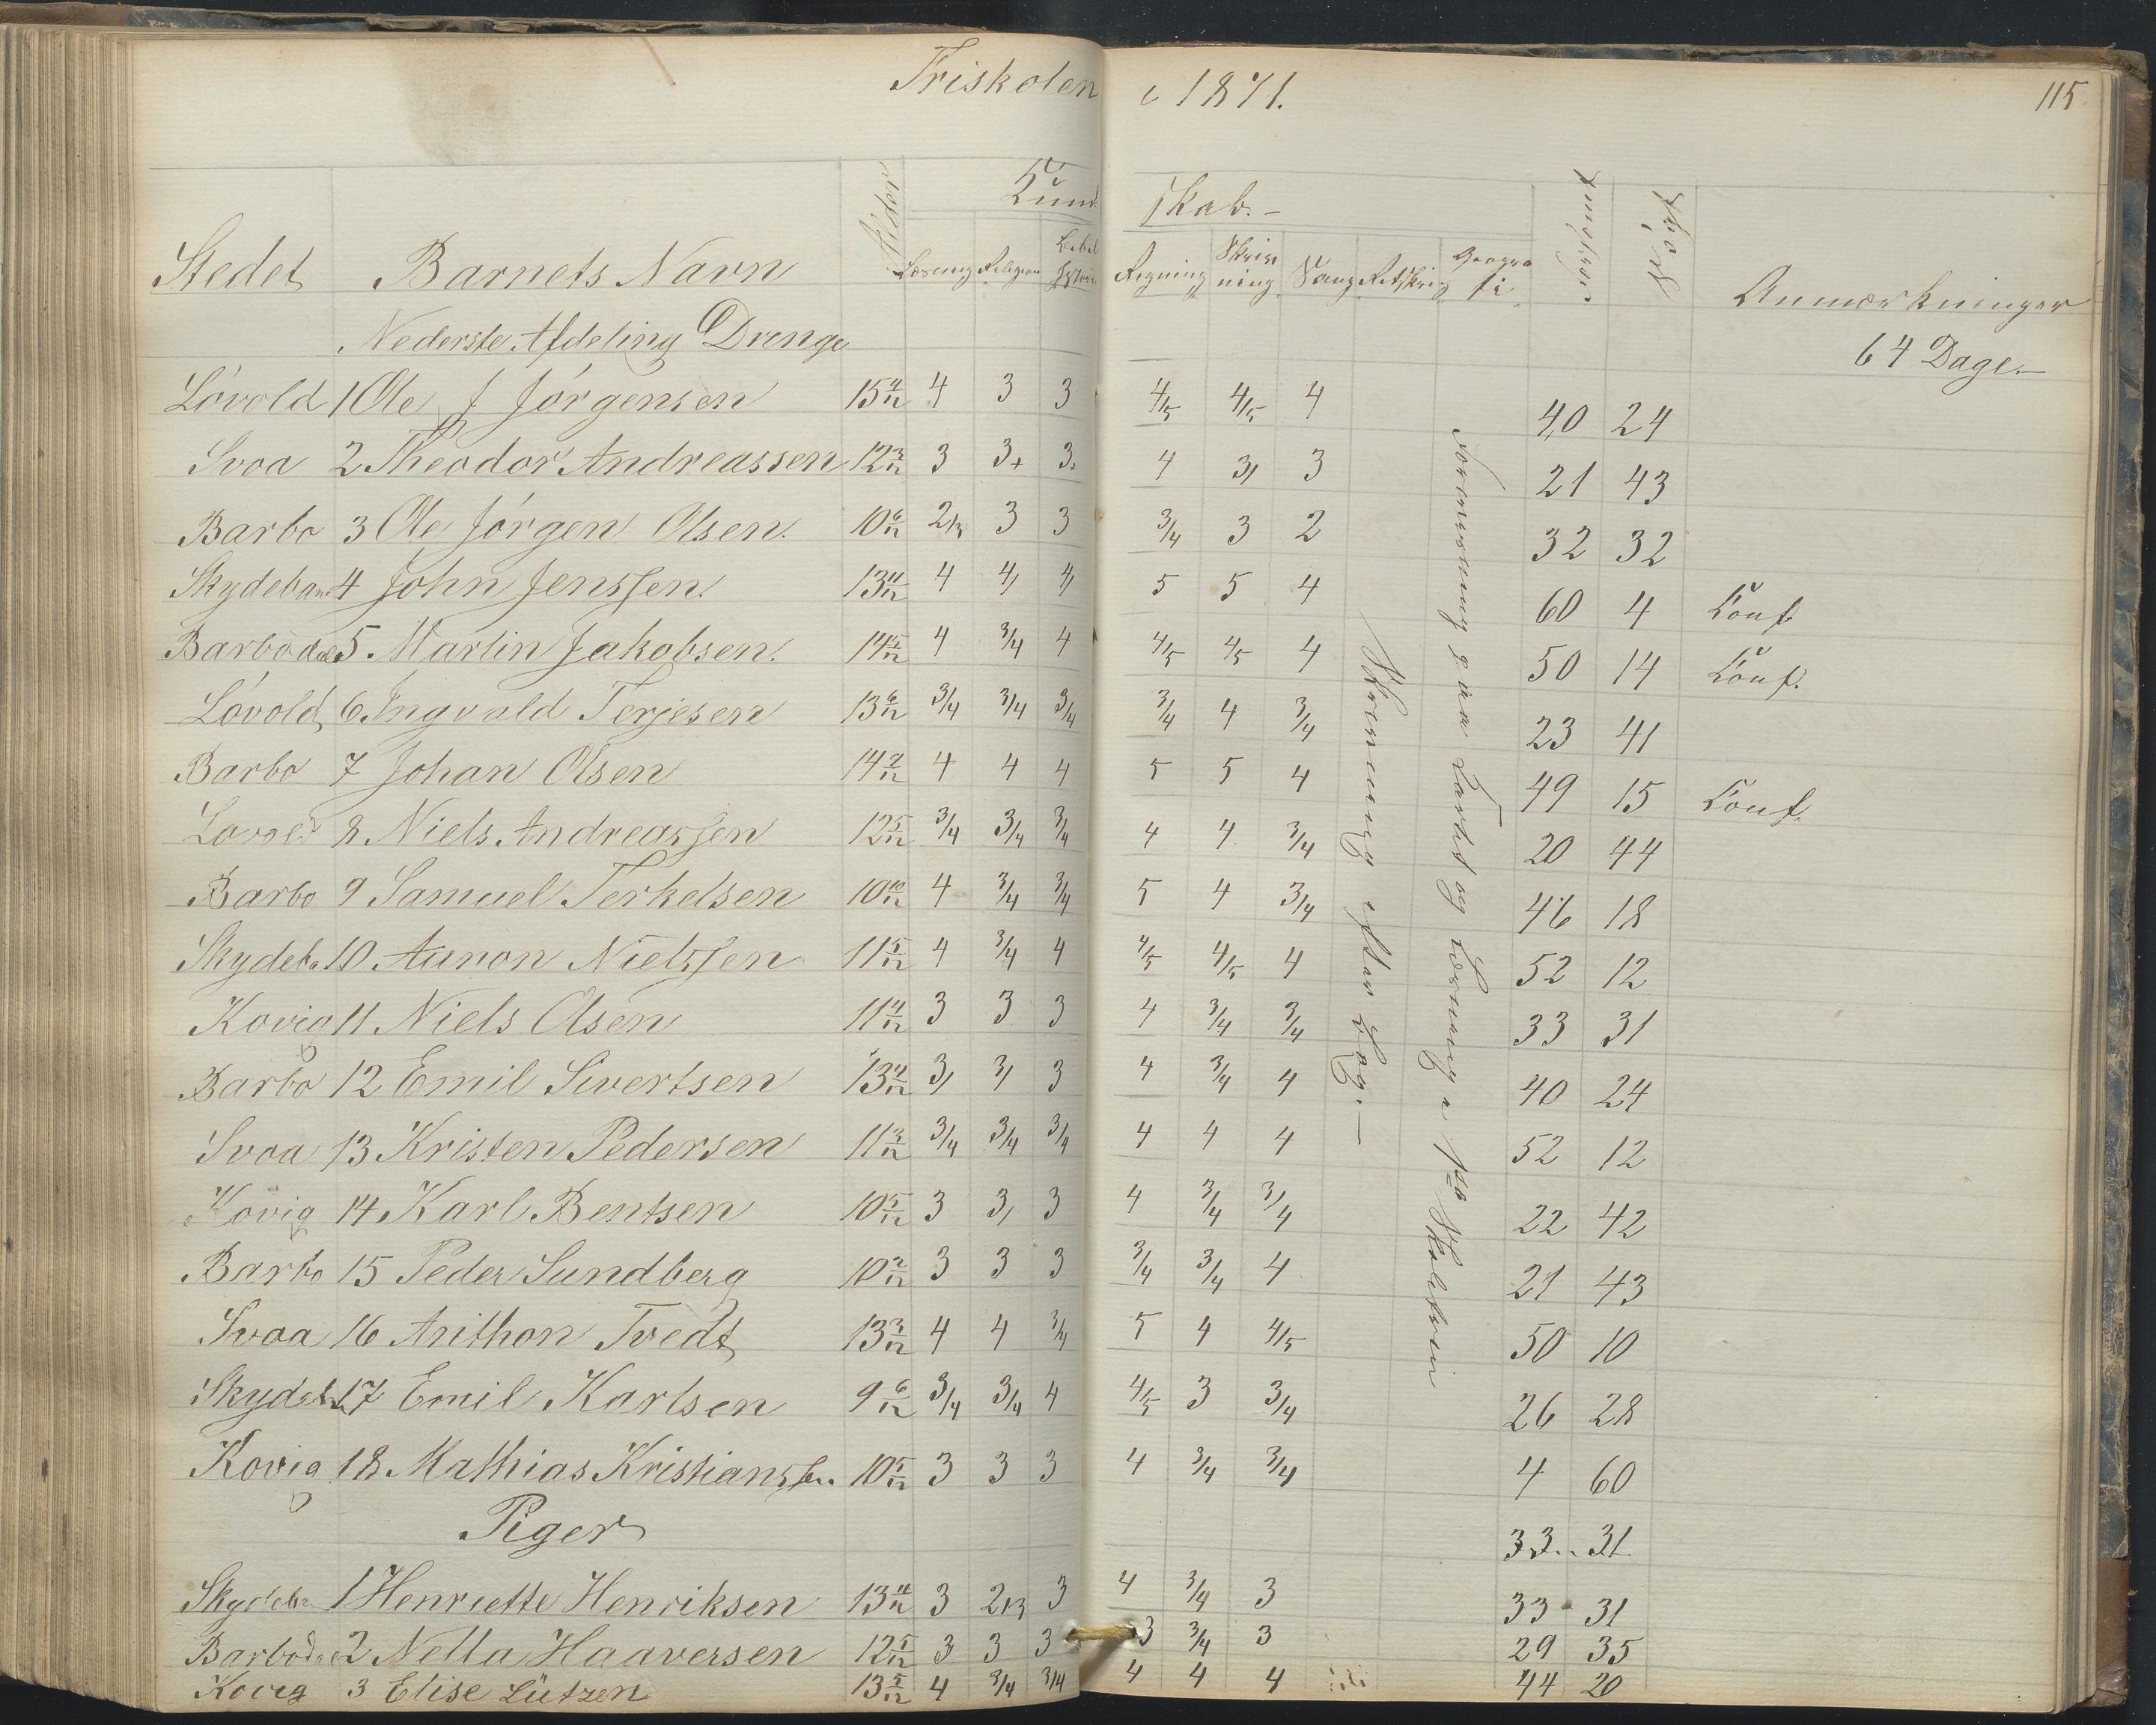 Friskolen i 1871. 115
Kundskab.-
Stedet Barnets Navn Alder Læsning Religion Bibelhistorie Regning Skrivning Sang Retskriv Geografi Fremmødt Forsømt Anmærkninger
Nederste Afdeling Drenge 64 Dage.-
Lóvold 1 Ole J Jórgensen 15 4/12 4 3 3 4/5 4/5 4 40 24
Svoa 2 Theodor Andreassen 12 3/12 3 3+ 3. 4 3/ 3 21 43
Barbo 3 Ole Jórgen Olsen. 10 6/12 2/3 3 3 3/4 3 2 32 32
Skydeban 4 John Jenssen. 13 11/12 4 4/ 4/ 5 5 4 60 4 Conf.
Barbodal 5 Martin Jakobsen. 14 5/12 4 3/4 4 4/5 4/5 4 50 14 Conf.
Lóvold 6 Ingvald Terjesen 13 6/12 3/4 3/4 3/4 3/4 4 3/4 23 41
Barbo 7 Johan Olsen 14 9/12 4 4 4 5 5 4 49 15 Conf.
Lovold 8 Niels Andreassen 12 5/12 3/4 3/4 3/4 4 4 3/4 20 44
Barbo 9 Samuel Terkelsen 10 10/12 4 3/4 3/4 5 4 3/4 46 18
Skydeb. 10 Aanon Nielssen 11 5/12 4 3/4 4 4/5 4/5 4 52 12
Kovig 11 Niels Olsen 11 4/12 3 3 3 4 3/4 3/4 33 31
Barbo 12 Emil Sivertsen 13 4/12 3/ 3/ 3 4 3/4 4 40 24
Svoa 13 Kristen Pedersen 11 3/12 3/4 3/4 3/4 4 4 4 52 12
Kovig 14 Karl Bentsen 10 5/12 3 3/ 3 4 3/4 3/4 22 42
Barbo 15 Peder Sundberg 10 2/12 3 3 3 3/4 3/4 4 21 43
Svoa 16 Anthon Tvedt 13 3/12 4 4 3/4 5 4 4/5 50 10
Skydeb 17 Emil Karlsen 9 6/12 3/4 3/4 4 4/5 3 3/4 26 28
Kovig 18 Mathias Kristianssen. 10 5/12 3 3 3 4 3/4 3/4 4 60
Piger 33 .. 31
Skydeb. 1 Henriette Henriksen 13 11/12 3 2/3 3 4 3/4 3 33 31
Barbodal 2 Nella Haaversen 12 5/12 3 3 3 3 3/4 3 29 35
Kovig 3 Elise Lützen 13 5/12 4 3/4 3/4 4 4 4 44 20
Skrivning efter Bog.-
paa Kartet og Læsning i